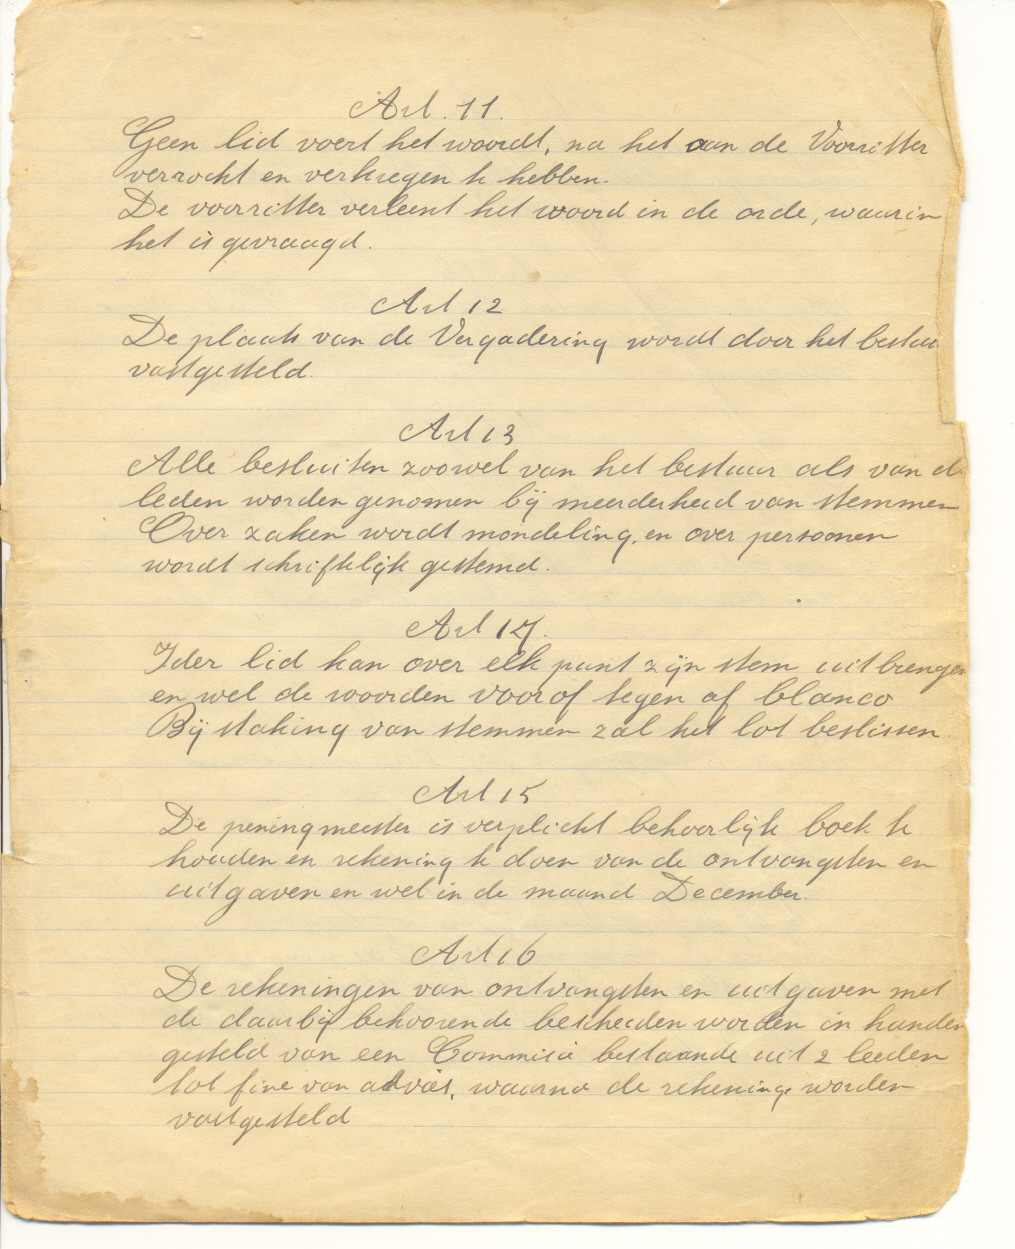 Art. 11.
Geen lid voert het woordt, na het aan de Voorzitter
verzocht en verkregen te hebben.
De voorzitter verleent het woord in de orde, waarin
het is gevraagd.
Art 12
De plaats van de Vergadering wordt door het bestuu
vastgesteld.
Art 13
Alle besluiten zoowel van het bestuur als van de
leden worden genomen bij meerderheid van stemmen
Over zaken wordt mondeling, en over persoonen
wordt schriftelijk gestemd.
Art 14.
Ider lid kan over elk punt zijn stem uitbrengen
en wel de woorden voor of tegen of blanco
Bij staking van stemmen zal het lot beslissen.
Art 15
De peningmeester is verplicht behoorlijk boek te
houden en rekening te doen van de ontvangsten en
uitgaven en wel in de maand December.
Art 16
De rekeningen van ontvangsten en uitgaven met
de daarbij behoorende bescheiden worden in handen
gesteld van een Commisie bestaande uit 2 leeden
tot fine van advies, waarna de rekeninge worden
vastgesteld